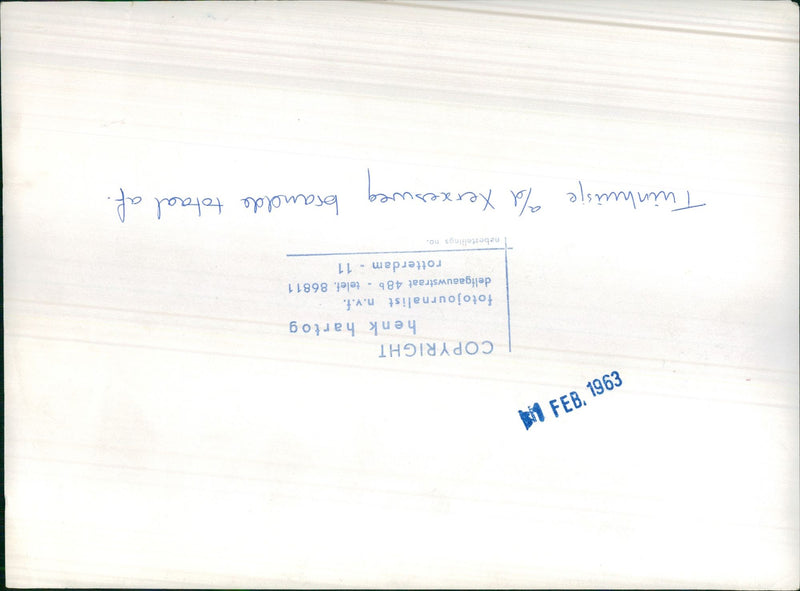 FEB. 1963
COPYRIGHT
henk hartog
fotojournalist n.v.f.
delfgaauwstraat 48b - telef. 86811
rotterdam - 11
nabestellings no.
Tuinhuisje a/d Xerxesweg brandde totaal af.